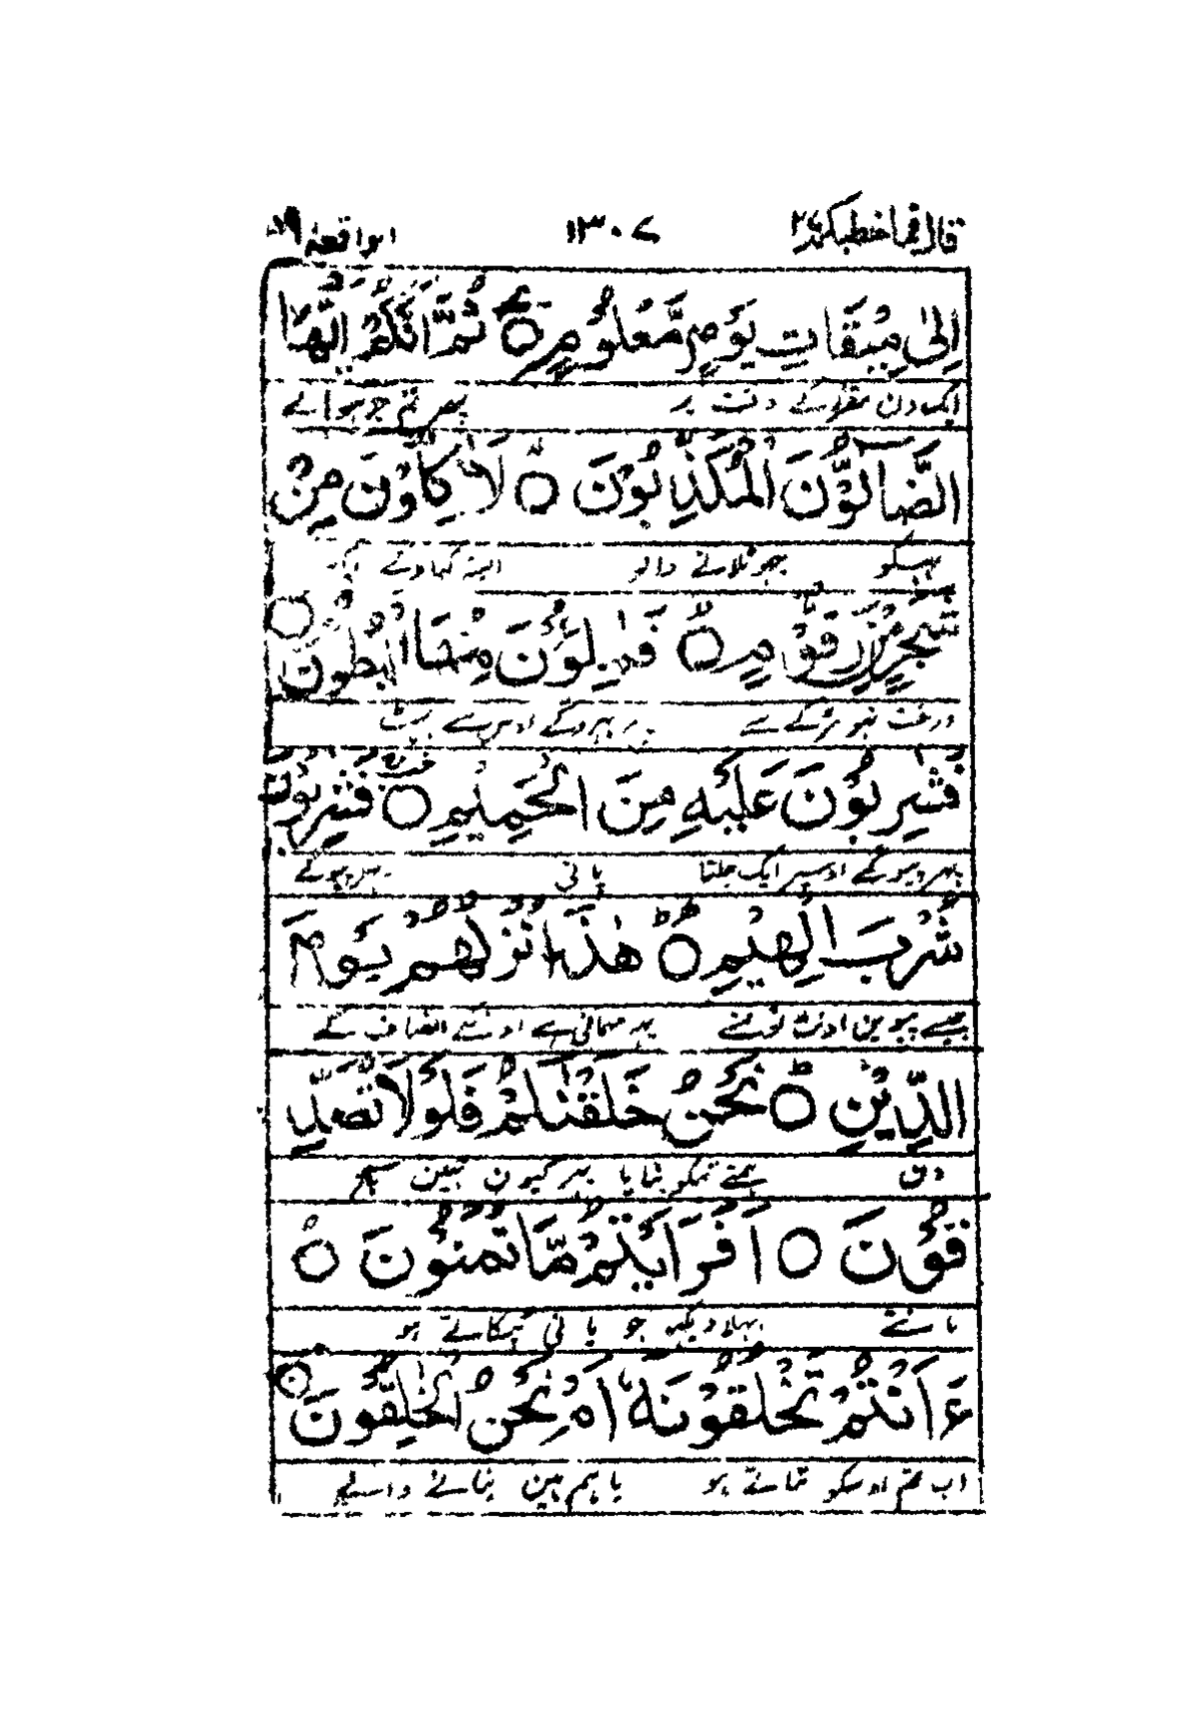 قال فما خطبكم ٢٧ ١٣٠٧ الواقعة
إِلىٰ مِيْقَاتِ يَوْمٍ مَّعْلُوْمٍ ۝ ثُمَّ اِنَّكُمْ اَيُّهَا
ایک دن مقرر کے وقت پر پھر تم جو ہو اے
الضَّآلُّوْنَ الْمُكَذِّبُوْنَ ۝ لَاٰكِلُوْنَ مِنْ
بہکو جھوٹلانے والو البتہ کھاوگے
شَجَرٍ مِّنْ زَقُّوْمٍ ۝ فَمٰلِئُوْنَ مِنْهَا الْبُطُوْنَ ۝
درخت سے پھر بھروگے اوس سے پیٹ
فَشٰرِبُوْنَ عَلَيْهِ مِنَ الْحَمِيْمِ ۝ فَشٰرِبُوْنَ
پھر پیوگے اوسپر ایک جلتا پانی
شُرْبَ الْهِيْمِ ۝ هٰذَا نُزُلُهُمْ يَوْمَ
جیسے پیوین اونٹ تونسے یہہ مہمانی ہے اونکی انصاف کے
الدِّيْنِ ۝ نَحْنُ خَلَقْنٰكُمْ فَلَوْلَا تُصَدِّ
دن ہمنے تمکو بنایا پھر کیون نہین سچ
قُوْنَ ۝ اَفَرَاَيْتُمْ مَّا تُمْنُوْنَ ۝
مانتے بھلا دیکھو جو پانی ٹپکاتے ہو
ءَاَنْتُمْ تَخْلُقُوْنَهٗ اَمْ نَحْنُ الْخٰلِقُوْنَ ۝
اب تم اوسکو بناتے ہو یا ہم ہین بنانے والے